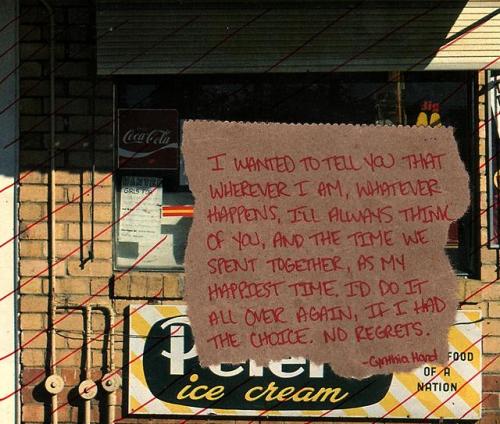 Coca-Cola
Big
I WANTED TO TELL YOU THAT
WHEREVER I AM, WHATEVER
HAPPENS, I'LL ALWAYS THINK
OF YOU, AND THE TIME WE
SPENT TOGETHER, AS MY
HAPPIEST TIME. I'D DO IT
ALL OVER AGAIN, IF I HAD
THE CHOICE. NO REGRETS.
-Cynthia Hand
Peter
ice cream
FOOD
OF A
NATION